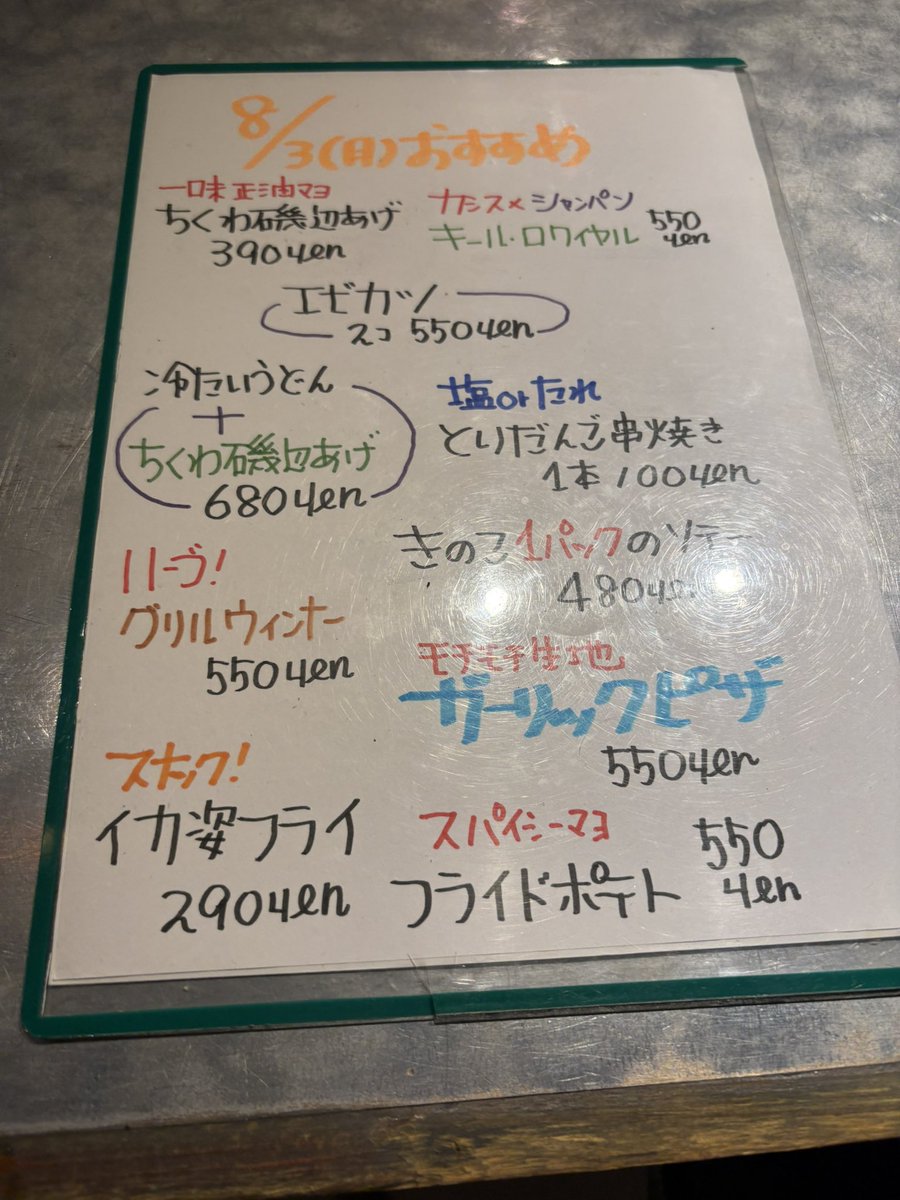 8/3(月)おすすめ
一味正油マヨ
ちくわ磯辺あげ
390yen
カシス×シャンパン
キール・ロワイヤル 550yen
エビカツ
2コ 550yen
冷たいうどん
+
ちくわ磯辺あげ
680yen
塩orたれ
とりだんご串焼き
1本100yen
ハーブ!
グリルウィンナー
550yen
きのこ1パックのソテー
480yen
モチモチ生地
ガーリックピザ
550yen
スナック!
イカ姿フライ
290yen
スパイシーマヨ
フライドポテト 550yen